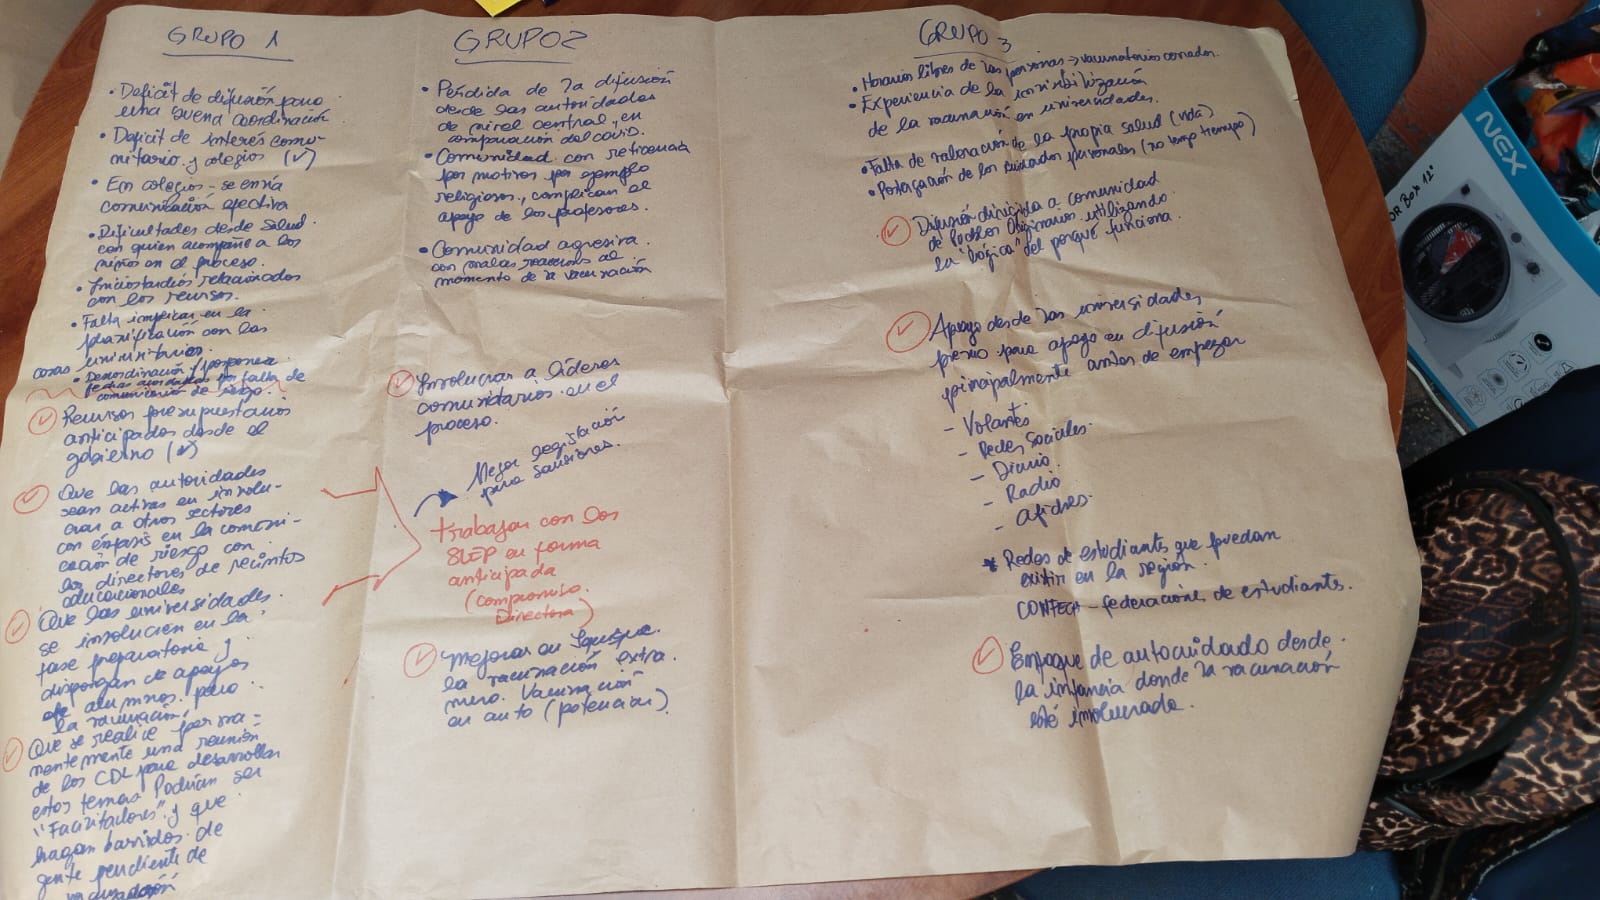 GRUPO 1
• Deficit de difusión para
una buena coordinación
• Deficit de interés comu-
nitario y colegios (✓)
• En colegios - se envía
comunicación efectiva
• Dificultades desde Salud
con quien acompañe a los
niños en el proceso.
relacionados
con los recursos.
• Falta implicar en la
planificación con las
universitarios.
cosas • Descoordinación / posponer
fechas acordadas por falta de
comunicación de riesgo.
✓ Recursos presupuestarios
anticipados desde el
gobierno (✓)
✓ Que las autoridades
sean activas en involu-
crar a otros sectores
con énfasis en la comuni-
cación de riesgo con
los directores de recintos
educacionales
✓ Que las universidades.
se involucren en la
fase preparatoria y
dispongan de apoyos
de alumnos para
la vacunación.
✓ Que se realice perma-
nentemente una reunión
de los CDL para desarrollar
estos temas Podrían ser
"Facilitadores" y que
hagan barridos de
gente pendiente de
vacunación
GRUPO 2
• Pérdida de la difusión
desde las autoridades
de nivel central, en
comparación del covid.
• Comunidad con reticencia
por motivos por ejemplo
religiosos, complican el
apoyo de los profesores.
• Comunidad agresiva.
con malas reacciones al
momento de la vacunación
✓ Involucrar a líderes
comunitarios en el
proceso.
Mejor legislación
para sanciones.
trabajar con los
SLEP en forma
anticipada
(compromiso.
Directora)
✓ Mejorar en Iquique.
la vacunación extra.
muro. Vacunación
en auto (potenciar).
GRUPO 3
• Horarios libres de las personas → vacunatorios cerrados.
• Experiencia de la invisibilización
de la vacunación en universidades.
• Falta de valoración de la propia salud (vida)
• Postergación de los cuidados personales (no tengo tiempo)
✓ Difusión dirigida a comunidad
de Pueblos Originarios utilizando
la lógica "del porqué funciona.
✓ Apoyo desde las universidades
previo para apoyo en difusión
principalmente antes de empezar
- Volantes
- Redes Sociales.
- Diario
- Radio
- Afiches.
* Redes de estudiantes que puedan
existir en la región.
CONFECH - federaciones de estudiantes.
✓ Enfoque de autocuidado desde
la infancia donde la vacunación
esté involucrada.
NEX
OR Box 12"